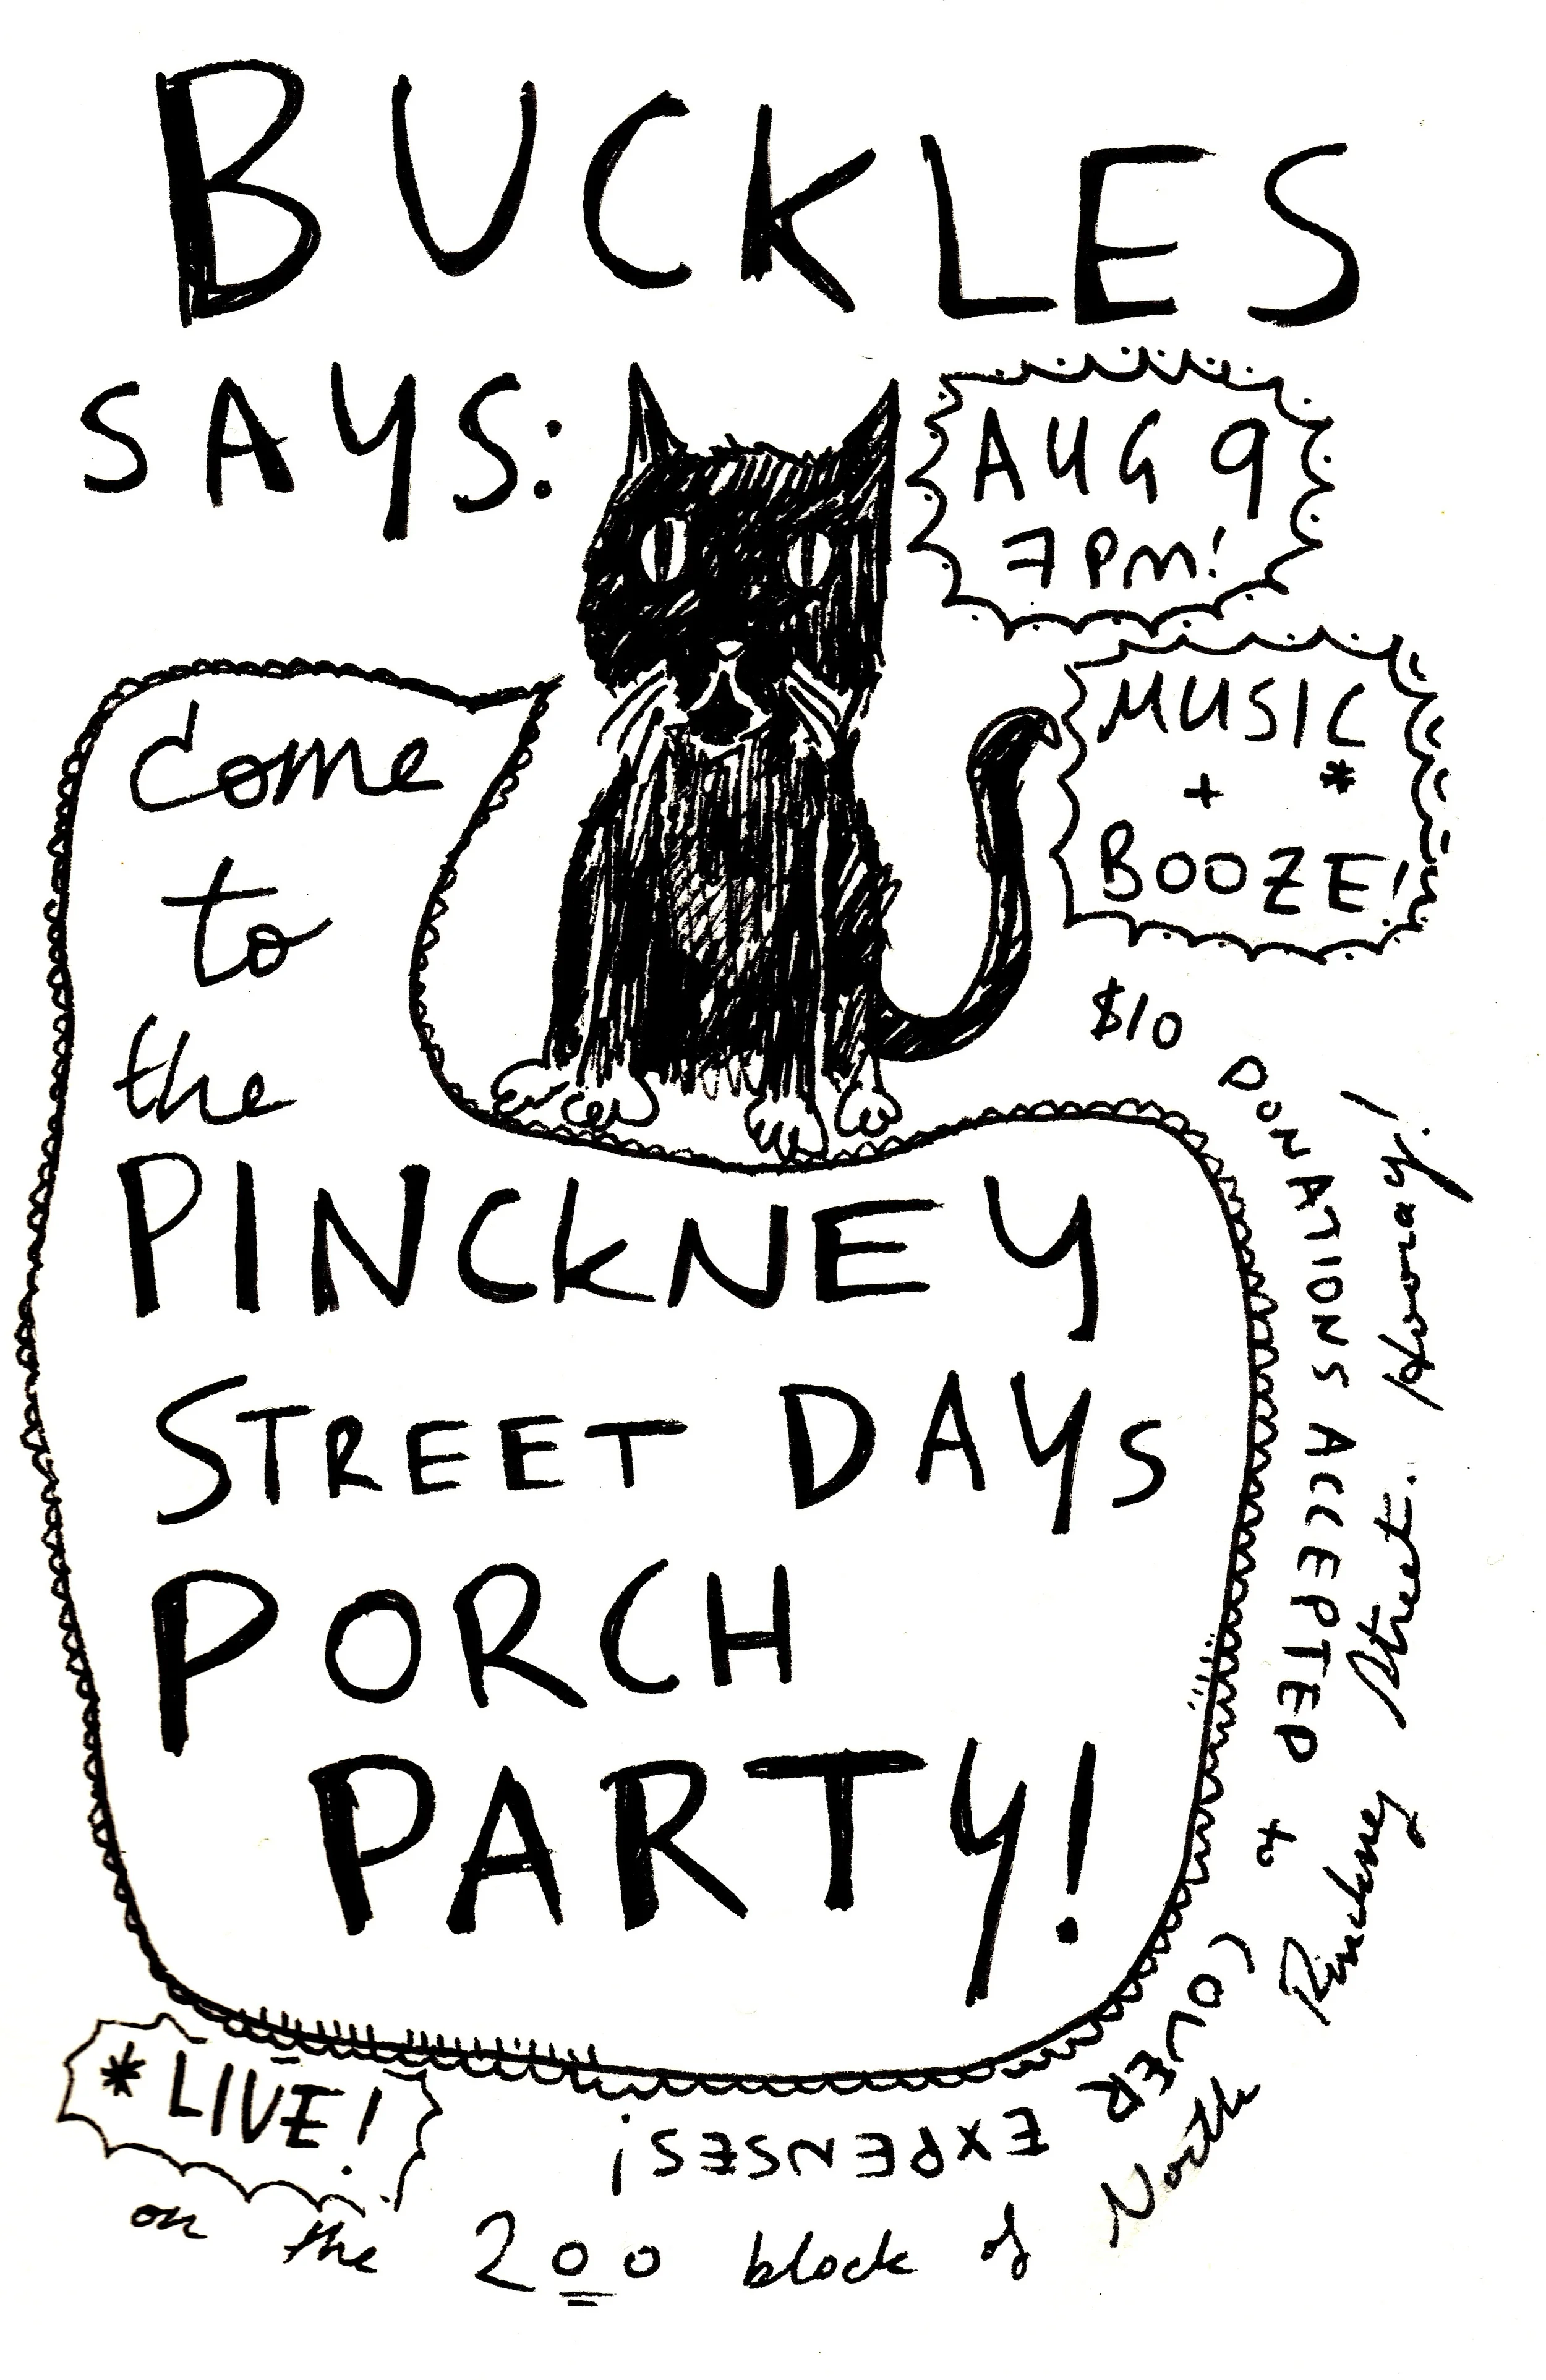 BUCKLES
SAYS:
AUG 9
7PM!
MUSIC*
+
BOOZE!
come
to
the
PINCKNEY
STREET DAYS
PORCH
PARTY!
$10 DONATIONS ACCEPTED to COLTER EXPENSES!
*LIVE!
on the 200 block of North Pinckney Street. Hooray!